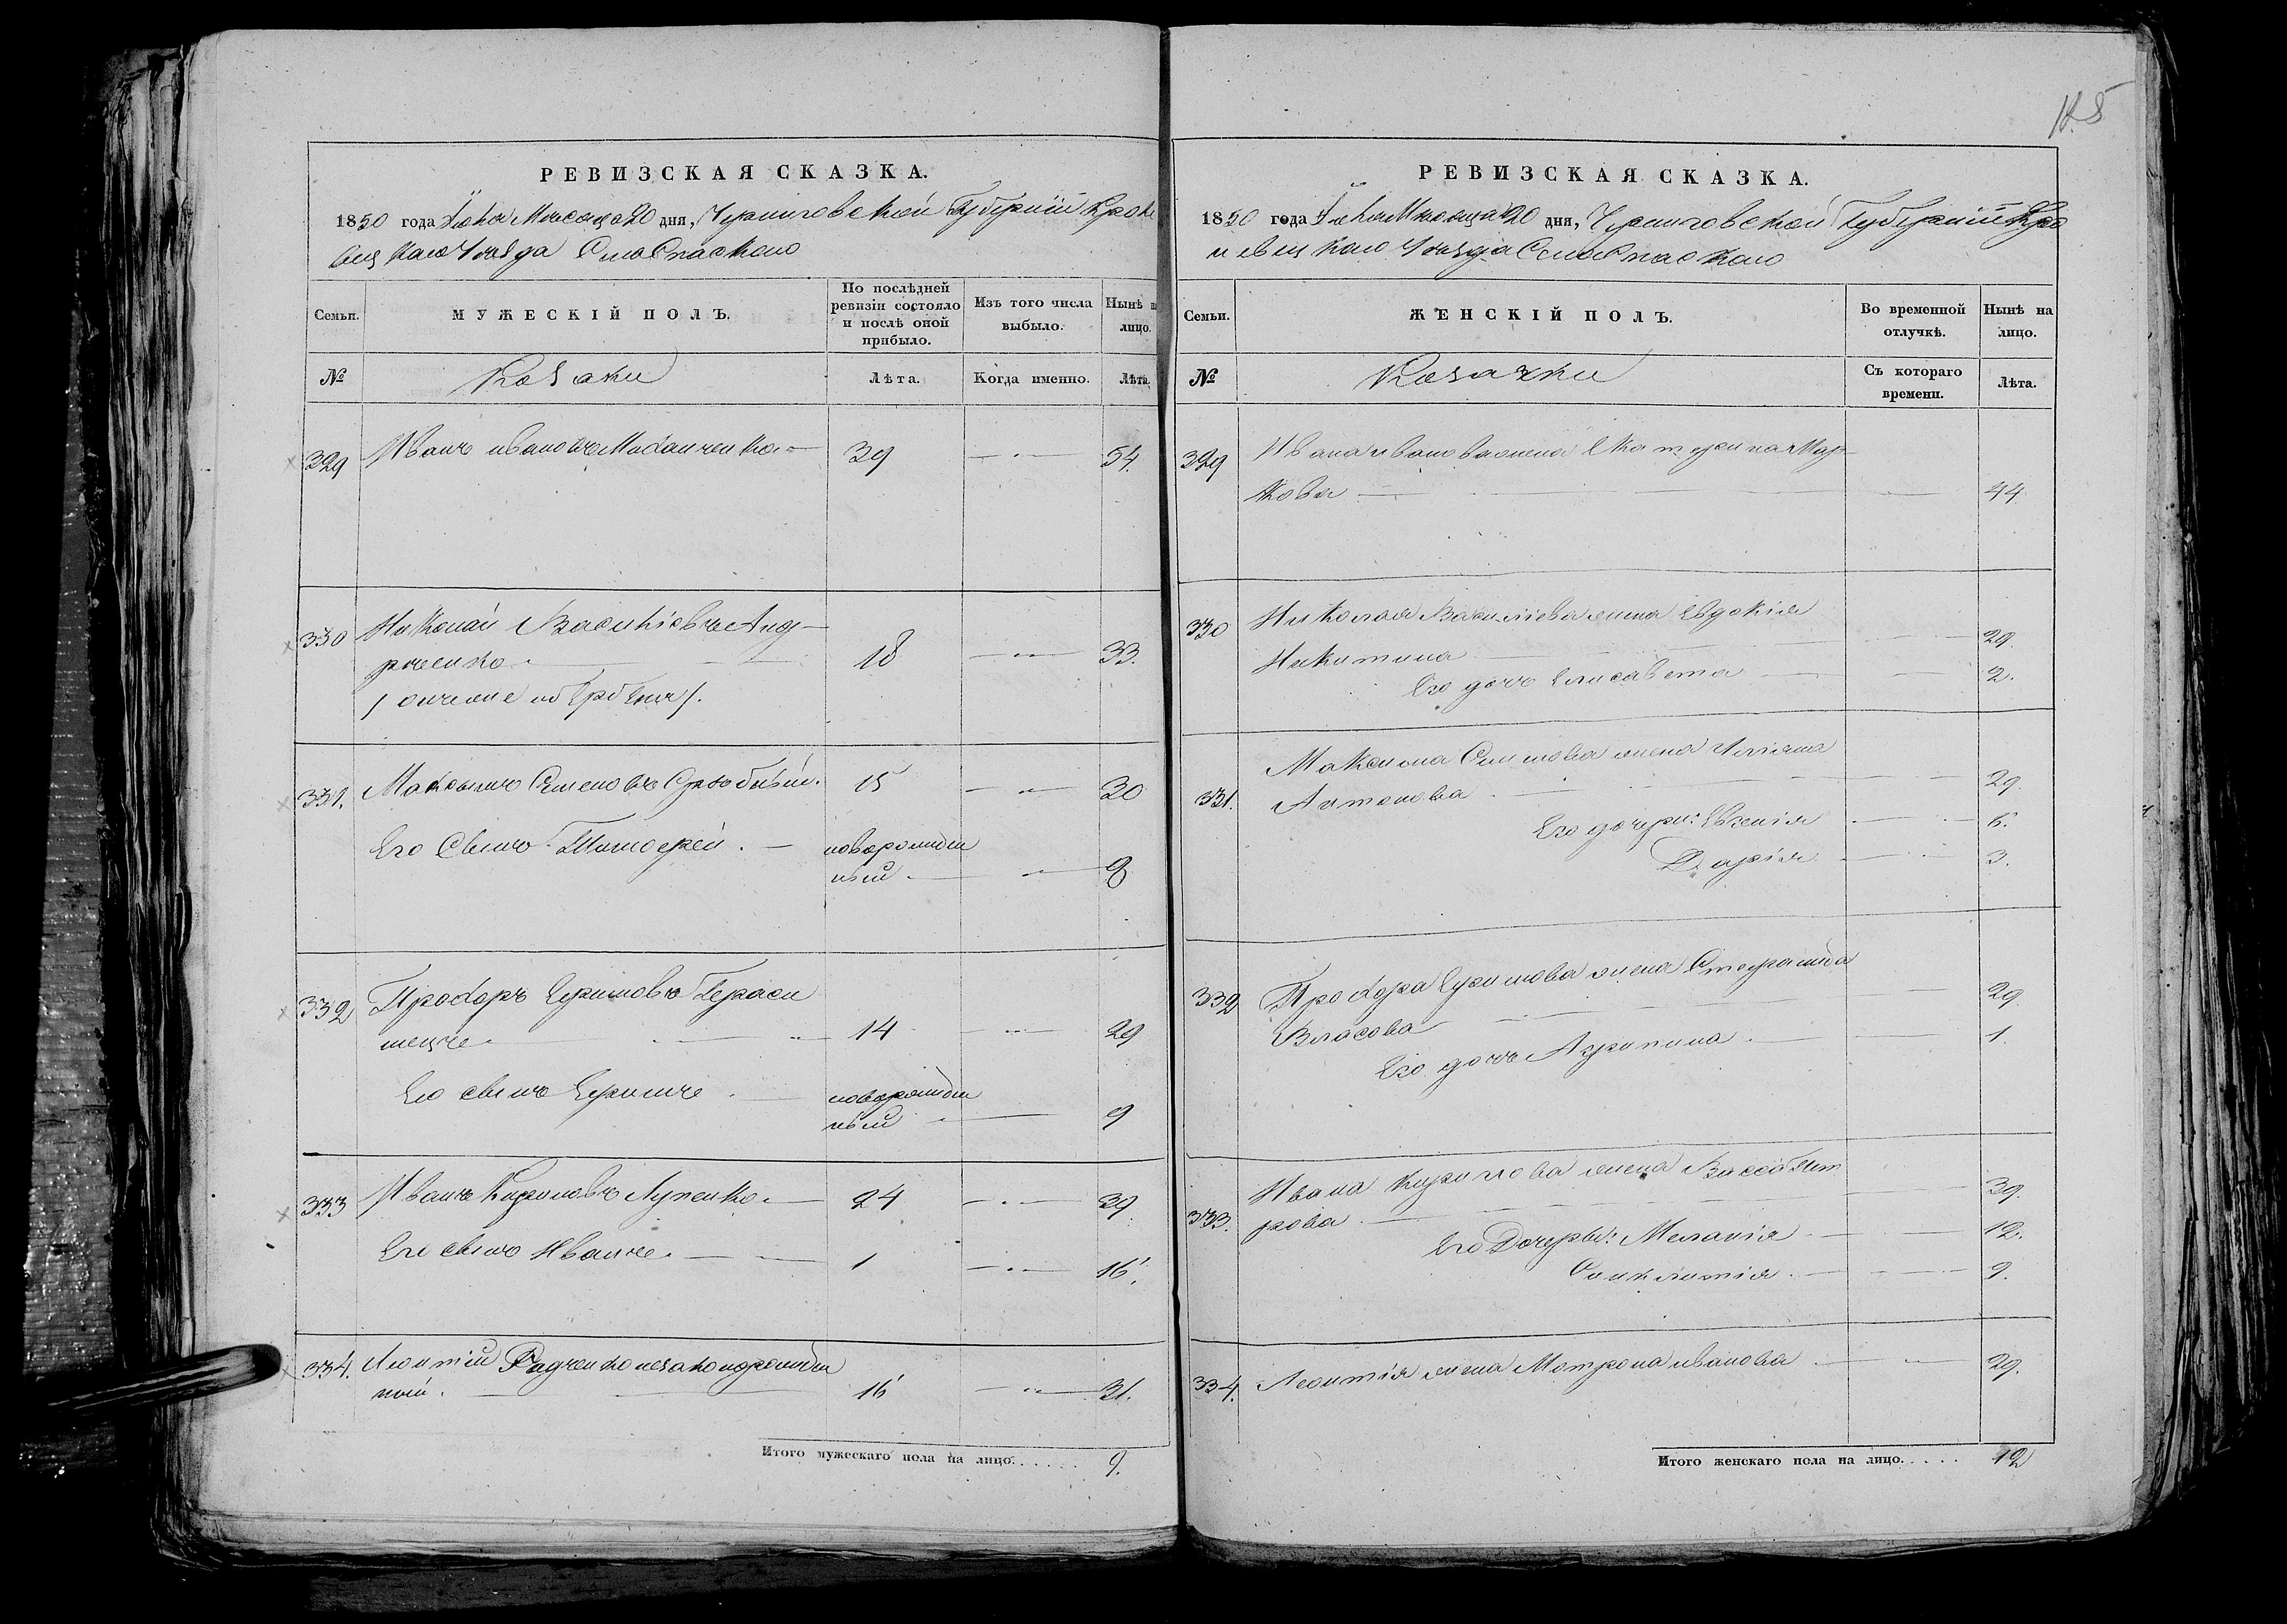 125
РЕВИЗСКАЯ СКАЗКА.
1850 года Июня Месяца 20 дня, Черниговской Губерніи Кроле
вецкаго Уезда Села Спаскаго
Семьи. МУЖЕСКІЙ ПОЛЪ. По послѣдней ревизіи состояло и послѣ оной прибыло. Изъ того числа выбыло. Нынѣ н лицо.
№ Козаки Лѣта. Когда именно. Лѣта.
329 Иванъ Ивановъ 39 54.
330 Николай Василіевъ Анд
рѣенко 18 33.
331. Максимъ Семеновъ 15 30
Его Сынъ Тимофей новорожден
ный 8
332 Прохоръ Ефимовъ Гераси
менко 14 29
Его сынъ Ефимъ новорожден
ный 9
333 Иванъ Кириловъ Лупенко 24 39
Его сынъ Иванъ 1 16.
334. Леонтій Радченко незаконорожден
ный. 16 31.
Итого мужескаго пола на лицо. 9.
РЕВИЗСКАЯ СКАЗКА.
1850 года Июня Месяца 20 дня, Черниговской Губерніи Кро
левецкаго Уезда Села Спаскаго
Семьи. ЖЕНСКІЙ ПОЛЪ. Во временной отлучкѣ. Нынѣ на лицо.
№ Козачки Съ котораго времени. Лѣта.
329 Ивана Иванова жена Екатерина Мар
кова 44.
330 Николая Василіева жена Евдокія
Никитина 29.
Его дочь Елисавета 2.
331. Максима Семенова жена Ульяна
Антонова 29.
Его дочери: Евгенія 6.
Дарія 3.
332 Прохора Ефимова жена Стефанида
Власова 29
Его дочь Агрипина 1.
333. Ивана Кирилова жена Васса Пет
рова 39.
Его Дочеры: Меланія 12.
Синклитія 9.
334. Леонтія жена Мотрона Иванова 29.
Итого женскаго пола на лицо. 12